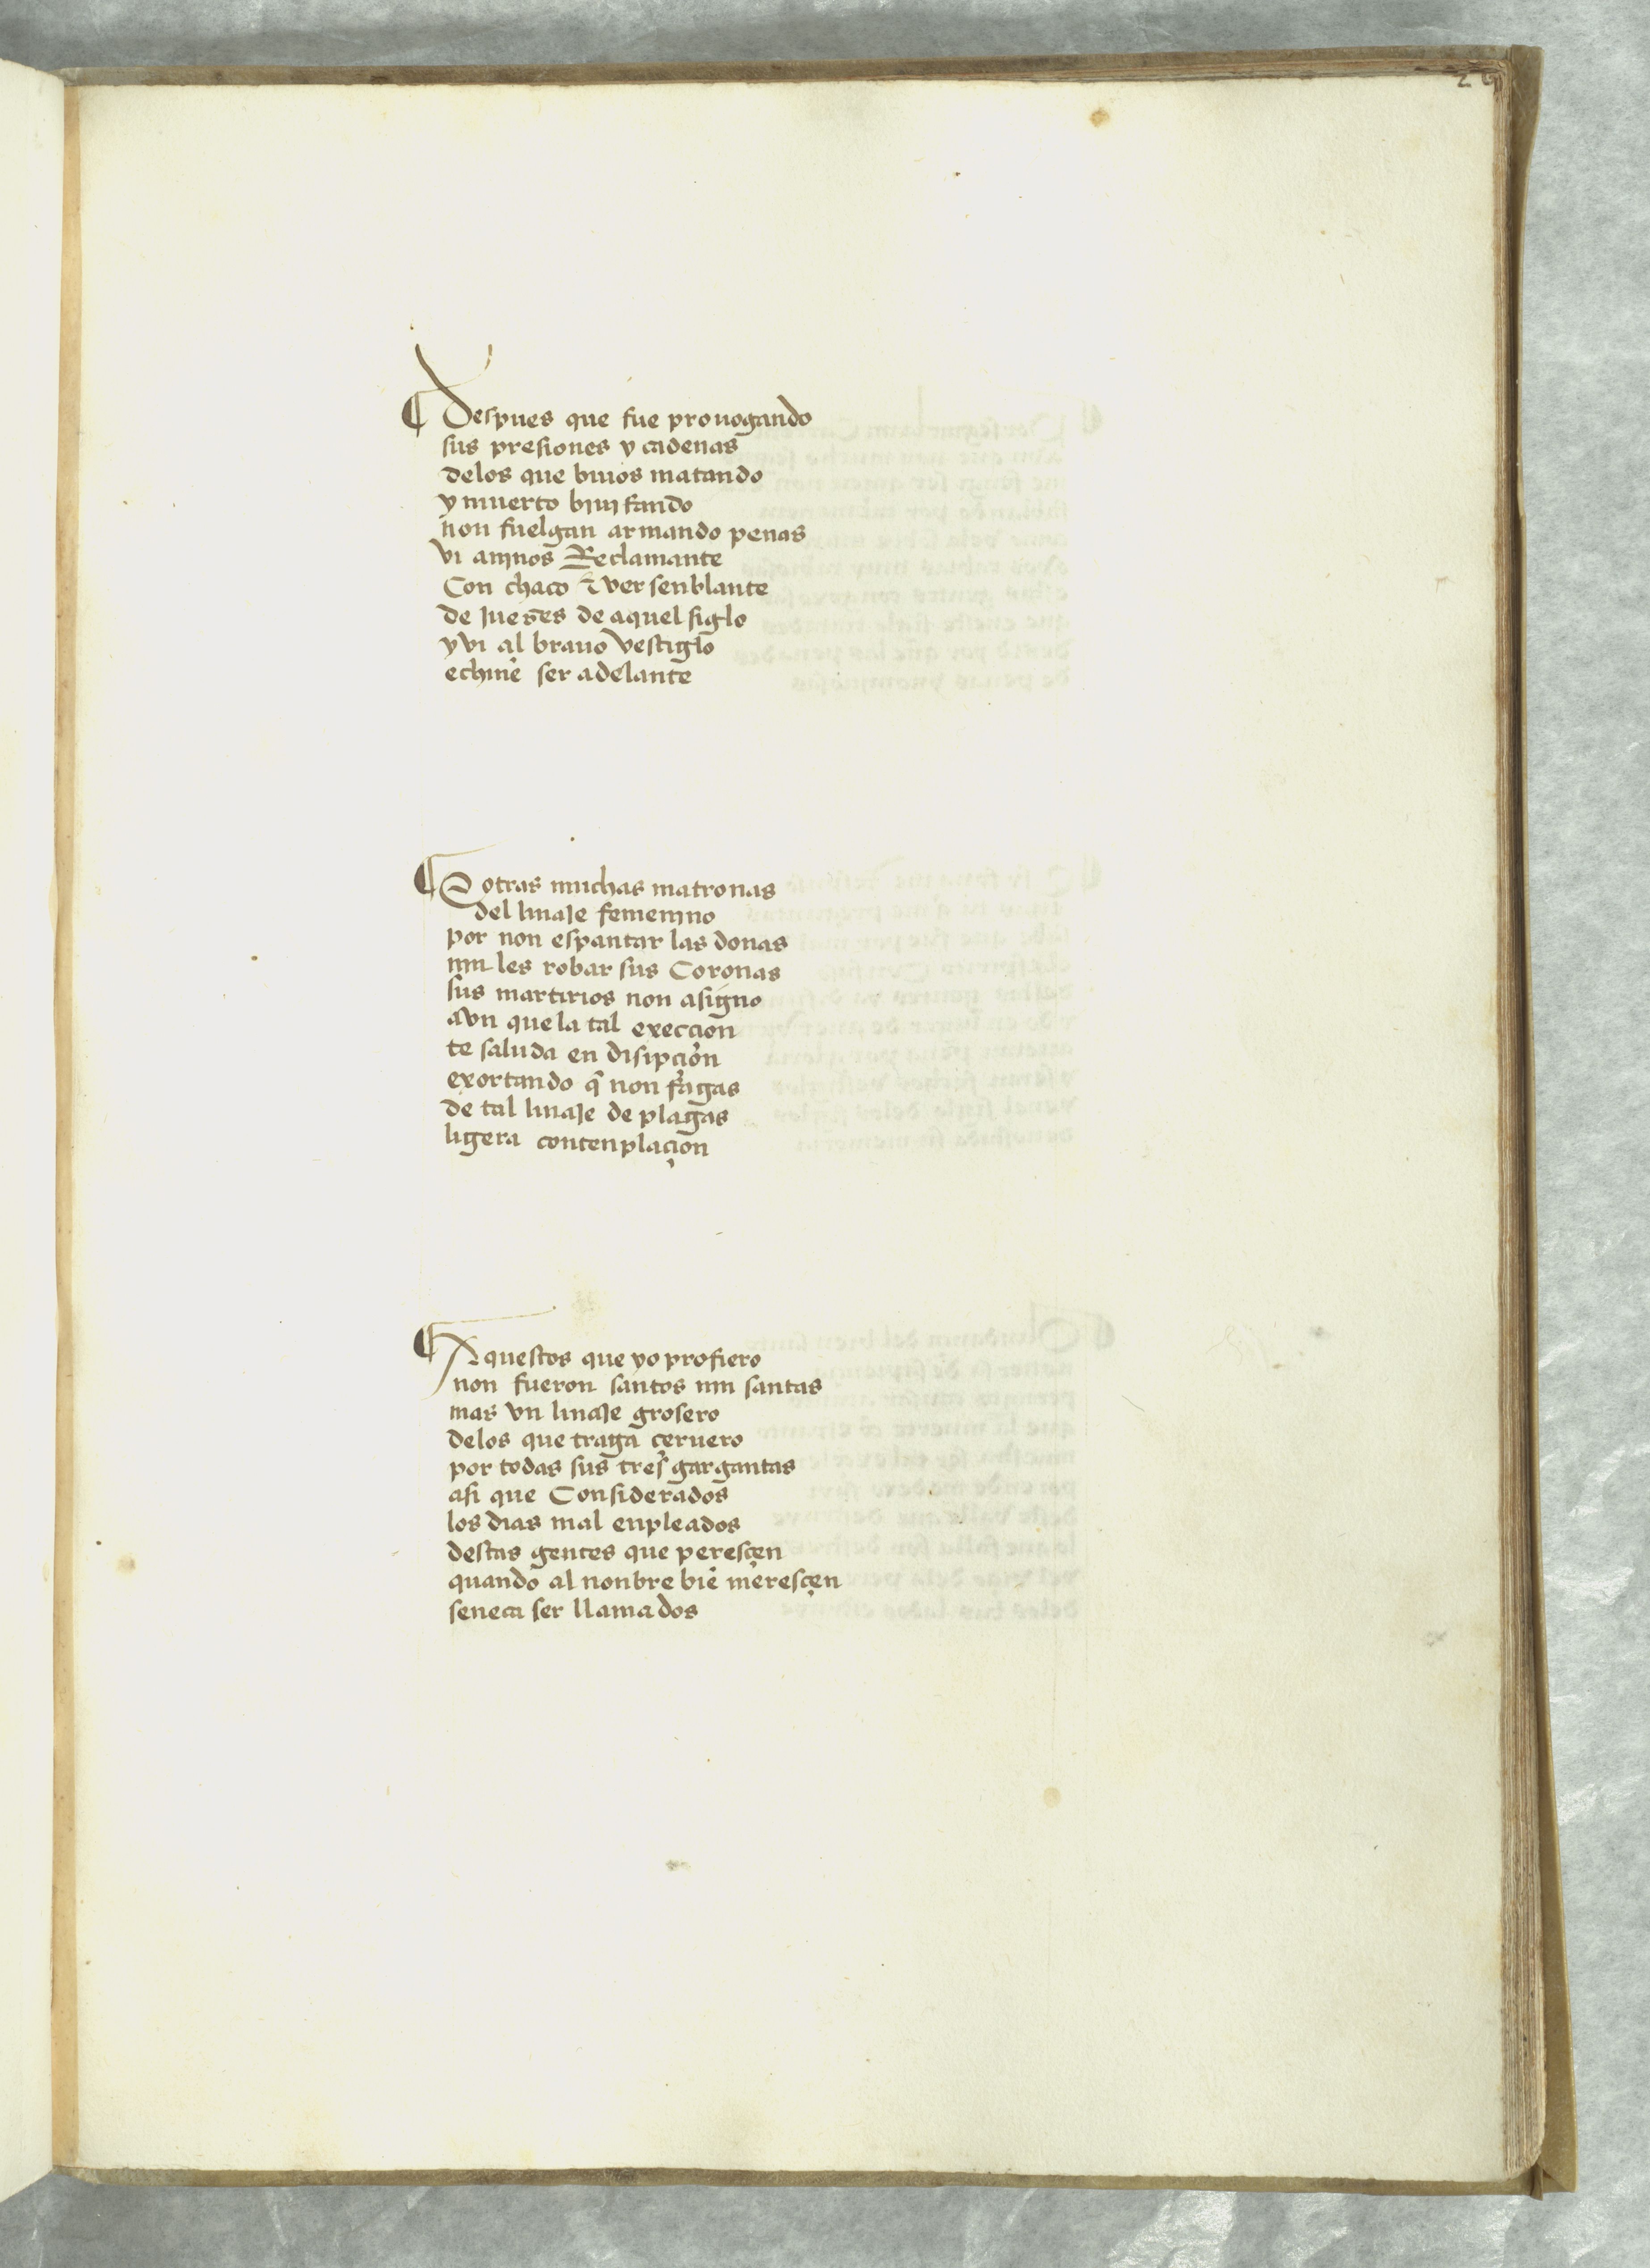 ¶ Despues que fue prouogando
sus presiones y cadenas
delos que biuos matando
y muerto biuifando
non fuelgan armando penas
vi aminos Reclamante
Con chaco & ver senblante
de jueses de aquel siglo
y vi al brauo vestiglo
echine ser adelante
¶ E otras muchas matronas
del linaje femenino
por non espantar las donas
nin les robar sus Coronas
sus martirios non asigno
avn que la tal exeçcion
te saluda en disipçion
exortando q̄ non fagas
de tal linaje de plagas
ligera contenplaçion
¶ Aquestos que yo profiero
non fueron santos nin santas
mas vn linaje grosero
delos que traga çeruero
por todas sus tres gargantas
asi que Considerados
los dias mal enpleados
destas gentes que peresçen
quando al nonbre biē meresçen
seneca ser llamados